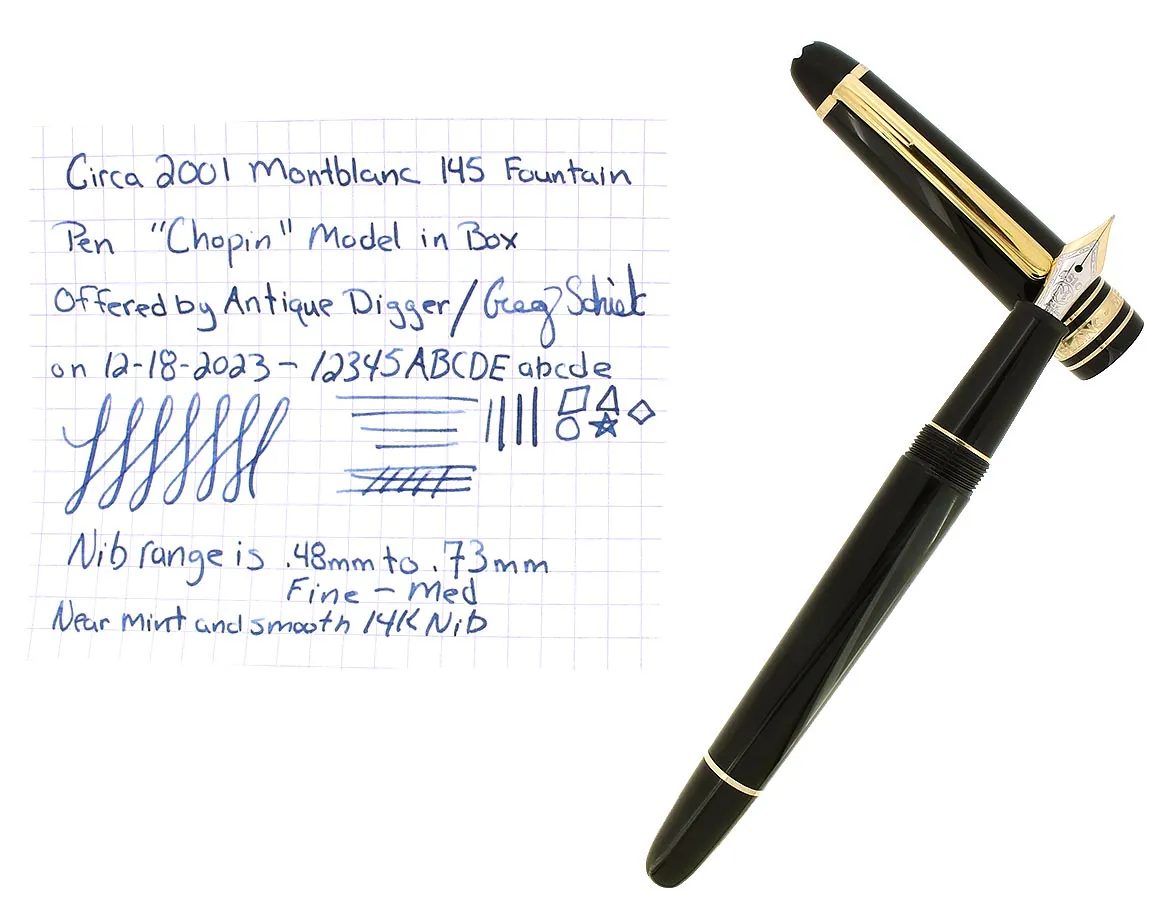 Circa 2001 Montblanc 145 Fountain
Pen "Chopin" Model in Box
Offered by Antique Digger / Greg
on 12-18-2023 - 12345 ABCDE abcde
Nib range is .48mm to .73mm
Fine - Med
Near Mint and smooth 14K Nib